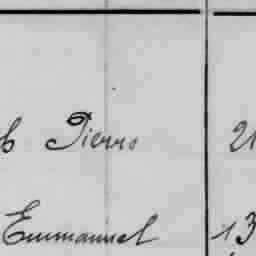 Pierre 21
Emmanuel 13